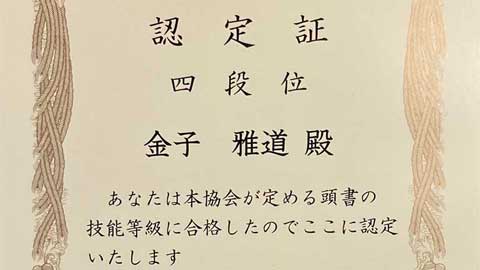 認定証
四段位
金子 雅道 殿
あなたは本協会が定める頭書の
技能等級に合格したのでここに認定
いたします